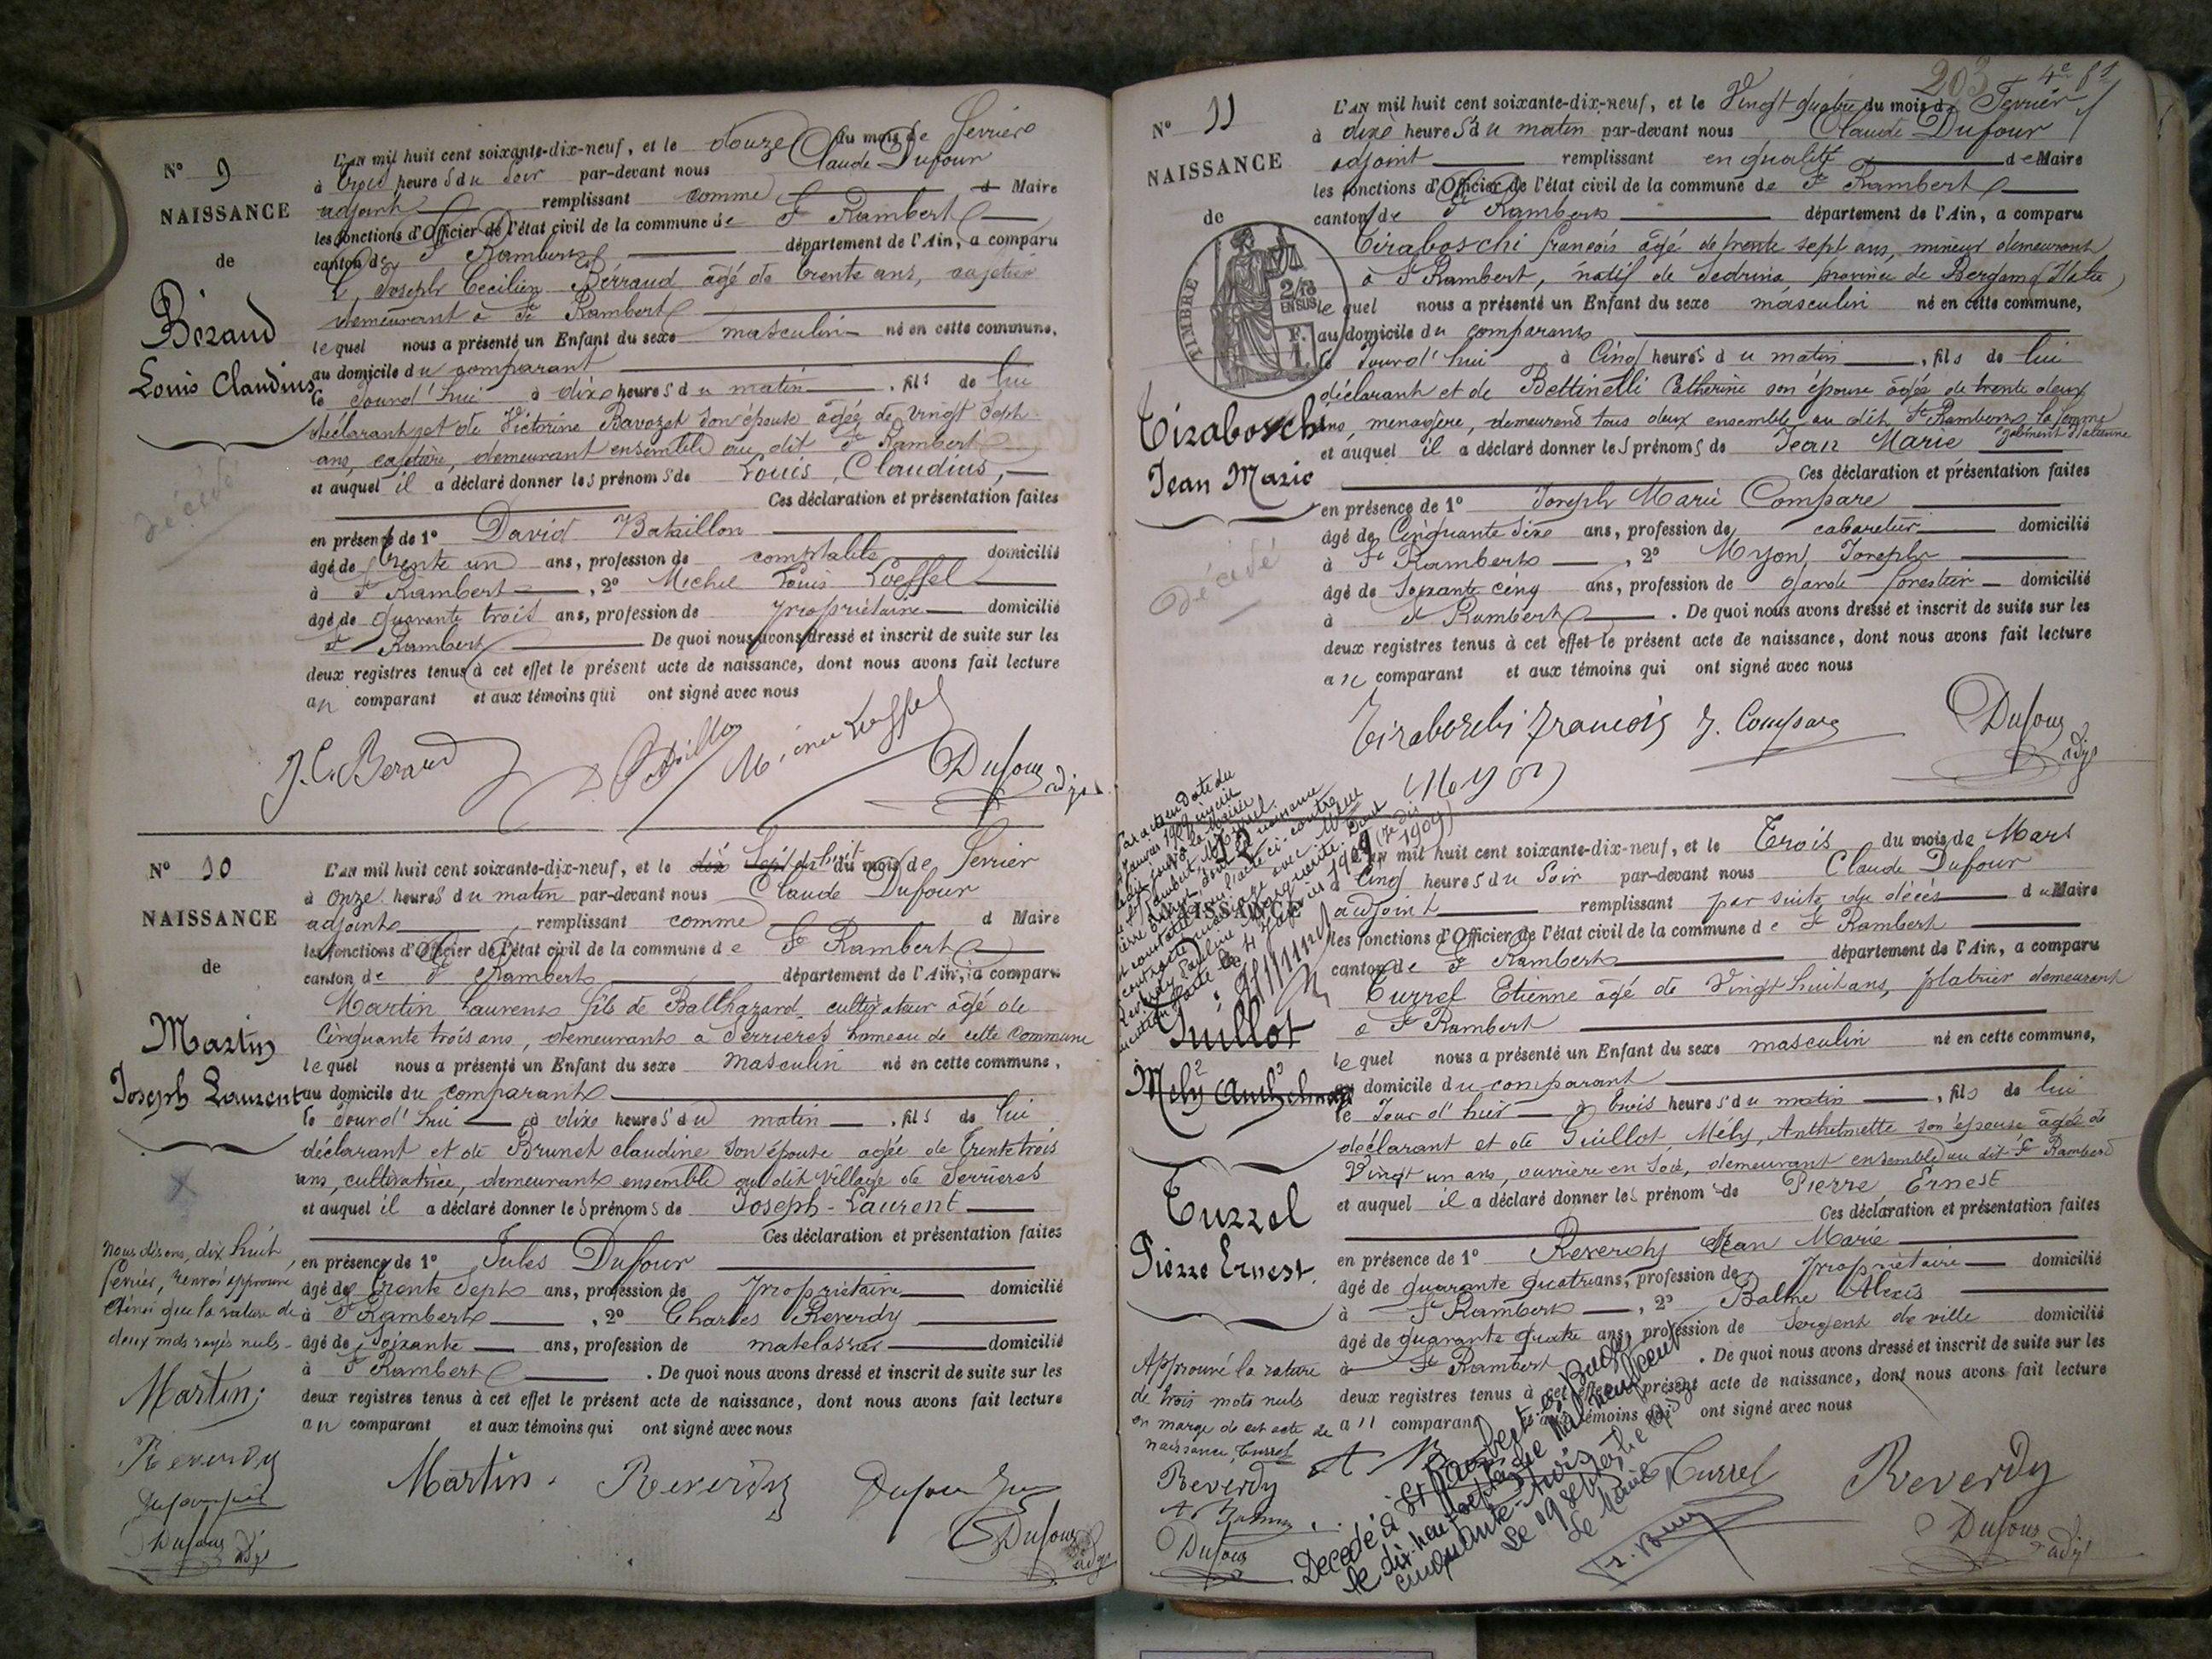 N° 9
NAISSANCE
de
Béraud
Louis Claudius
décédé
L'AN mil huit cent soixante-dix-neuf, et le douze du mois de Ferrier
à trois heures du soir par-devant nous Claude Dufour
adjoint remplissant comme d Maire
les fonctions d'Officier de l'état civil de la commune de St Rambert
canton de St Rambert département de l'Ain, a comparu
Joseph Cecilien Berraud âgé de trente ans, cafetier
demeurant à St Rambert
lequel nous a présenté un Enfant du sexe masculin né en cette commune,
au domicile du comparant
le Jourd'hui à dix heures du matin, fils de lui
déclarant et de Victorine Bavozet son épouse âgée de vingt sept
ans, cafetière, demeurant ensemble au dit St Rambert
et auquel il a déclaré donner les prénoms de Louis, Claudius,
Ces déclaration et présentation faites
en présence de 1° David Bataillon
âgé de trente un ans, profession de comptable domicilié
à St Rambert, 2° Michel Louis Loeffel
âgé de quarante trois ans, profession de propriétaire domicilié
St Rambert De quoi nous avons dressé et inscrit de suite sur les
deux registres tenus à cet effet le présent acte de naissance, dont nous avons fait lecture
au comparant et aux témoins qui ont signé avec nous
J. C. Berard Bataillon Loeffel Dufour adjt
N° 10
NAISSANCE
de
Martin
Joseph Laurent
L'AN mil huit cent soixante-dix-neuf, et le dix huit du mois de Ferrier
à onze heures du matin par-devant nous Claude Dufour
adjoint remplissant comme d Maire
les fonctions d'Officier de l'état civil de la commune de St Rambert
canton de St Rambert département de l'Ain, a comparu
Martin Laurent fils de Balthazard, cultivateur âgé de
Cinquante trois ans, demeurant à Serrieres hameau de cette Commune
lequel nous a présenté un Enfant du sexe masculin né en cette commune,
au domicile du comparant
le Jourd'hui à dix heures du matin, fils de lui
déclarant et de Brunet claudine son épouse agée de trente trois
ans, cultivatrice, demeurant ensemble au dit village de Serrieres
et auquel il a déclaré donner les prénoms de Joseph-Laurent
Ces déclaration et présentation faites
en présence de 1° Jules Dufour
âgé de trente sept ans, profession de propriétaire domicilié
à St Rambert, 2° Charles Reverdy
âgé de soixante ans, profession de matelassier domicilié
à St Rambert. De quoi nous avons dressé et inscrit de suite sur les
deux registres tenus à cet effet le présent acte de naissance, dont nous avons fait lecture
au comparant et aux témoins qui ont signé avec nous
Nous disons, dix huit
fevrier, renvoi approuvé
Ainsi que la rature de
deux mots rayés nuls
Martin
Reverdy
Dufour adjt
Martin Reverdy Dufour Dufour adjt
203 4e ft
N° 11
NAISSANCE
de
TIMBRE
2/10
EN SUS
F.
1.
Tiraboschi
Jean Marie
décédé
L'AN mil huit cent soixante-dix-neuf, et le Vingt quatre du mois de Ferrier
à dix heures du matin par-devant nous Claude Dufour
adjoint remplissant en qualité de Maire
les fonctions d'Officier de l'état civil de la commune de St Rambert
canton de St Rambert département de l'Ain, a comparu
Tiraboschi francois âgé de trente sept ans, mineur demeurant
à St Rambert, natif de Sedrina province de Bergame (Italie)
lequel nous a présenté un Enfant du sexe masculin né en cette commune,
au domicile du comparant
le Jourd'hui à Cinq heures du matin, fils de lui
déclarant et de Bettinelli Catherine son épouse âgée de trente deux
ans, menagère, demeurant tous deux ensemble au dit St Rambert, la femme
et auquel il a déclaré donner les prénoms de Jean Marie
Ces déclaration et présentation faites
en présence de 1° Joseph Marie Compare
âgé de Cinquante dix ans, profession de cabaretier domicilié
à St Rambert, 2° Myon Joseph
âgé de soixante cinq ans, profession de garde forestier domicilié
à St Rambert. De quoi nous avons dressé et inscrit de suite sur les
deux registres tenus à cet effet le présent acte de naissance, dont nous avons fait lecture
au comparant et aux témoins qui ont signé avec nous
Tiraboschi Francois J. Compare Dufour adjt
Myon
NAISSANCE
Guillot
Mely Anthelmette
Turrel
Pierre Ernest
L'AN mil huit cent soixante-dix-neuf, et le Trois du mois de Mars
à Cinq heures du Soir par-devant nous Claude Dufour
adjoint remplissant par suite du décès du Maire
les fonctions d'Officier de l'état civil de la commune de St Rambert
canton de St Rambert département de l'Ain, a comparu
Turrel Etienne âgé de Vingt huit ans, platrier demeurant
à St Rambert
lequel nous a présenté un Enfant du sexe masculin né en cette commune,
au domicile du comparant
le Jour d'hui à trois heures du matin, fils de lui
déclarant et de Guillot, Mely, Anthelmette son épouse âgée de
Vingt un ans, ouvrière en soie, demeurant ensemble au dit St Rambert
et auquel il a déclaré donner les prénoms de Pierre Ernest
Ces déclaration et présentation faites
en présence de 1° Reverdy Jean Marie
âgé de quarante quatre ans, profession de propriétaire domicilié
à St Rambert, 2° Balme Alexis
âgé de quarante quatre ans, profession de Sergent de ville domicilié
à St Rambert. De quoi nous avons dressé et inscrit de suite sur les
deux registres tenus à cet effet le présent acte de naissance, dont nous avons fait lecture
au comparant et aux témoins qui ont signé avec nous
Approuvé la rature
de trois mots nuls
en marge de cet acte de
naissance, Turrel
Reverdy
Dufour
Décédé à St Rambert en Bugey
le dix-neuf septembre mil neuf cent
cinquante-trois
Le Maire
Turrel Reverdy
Dufour adjt